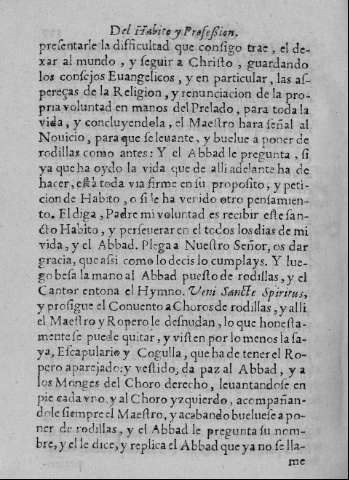 Del Habito y Profession.
presentarle la dificultad que consigo trae, el de-
xar al mundo, y seguir a Christo, guardando
los consejos Euangelicos, y en particular, las as-
pereças de la Religion, y renunciacion de la pro-
pria voluntad en manos del Prelado, para toda la
vida, y concluyendola, el Maestro hara señal al
Nouicio, para que se leuante, y buelue a poner de
rodillas como antes: Y el Abbad le pregunta, si
ya que ha oydo la vida que de alli adelante ha de
hacer, està toda via firme en su proposito, y peti-
cion de Habito, o si le ha venido otro pensamien-
to. El diga, Padre mi voluntad es recibir este san-
cto Habito, y perseuerar en el todos los dias de mi
vida, y el Abbad. Plega a Nuestro Señor, os dar
gracia, que assi como lo decis lo cumplays. Y lue-
go besa la mano al Abbad puesto de rodillas, y el
Cantor entona el Hymno. Veni Sancte Spiritus,
y prosigue el Conuento a Choros de rodillas, y alli
el Maestro y Ropero le desnudan, lo que honesta-
mente se puede quitar, y visten por lo menos la sa-
ya, Escapulario y Cogulla, que ha de tener el Ro-
pero aparejado: y vestido, da paz al Abbad, y a
los Monges del Choro derecho, leuantandose en
pie cada vno. y al Choro yzquierdo, acompañan-
dole siempre el Maestro, y acabando bueluese a po-
ner de rodillas, y el Abbad le pregunta su nom-
bre, y el le dice, y replica el Abbad que ya no se lla-
me